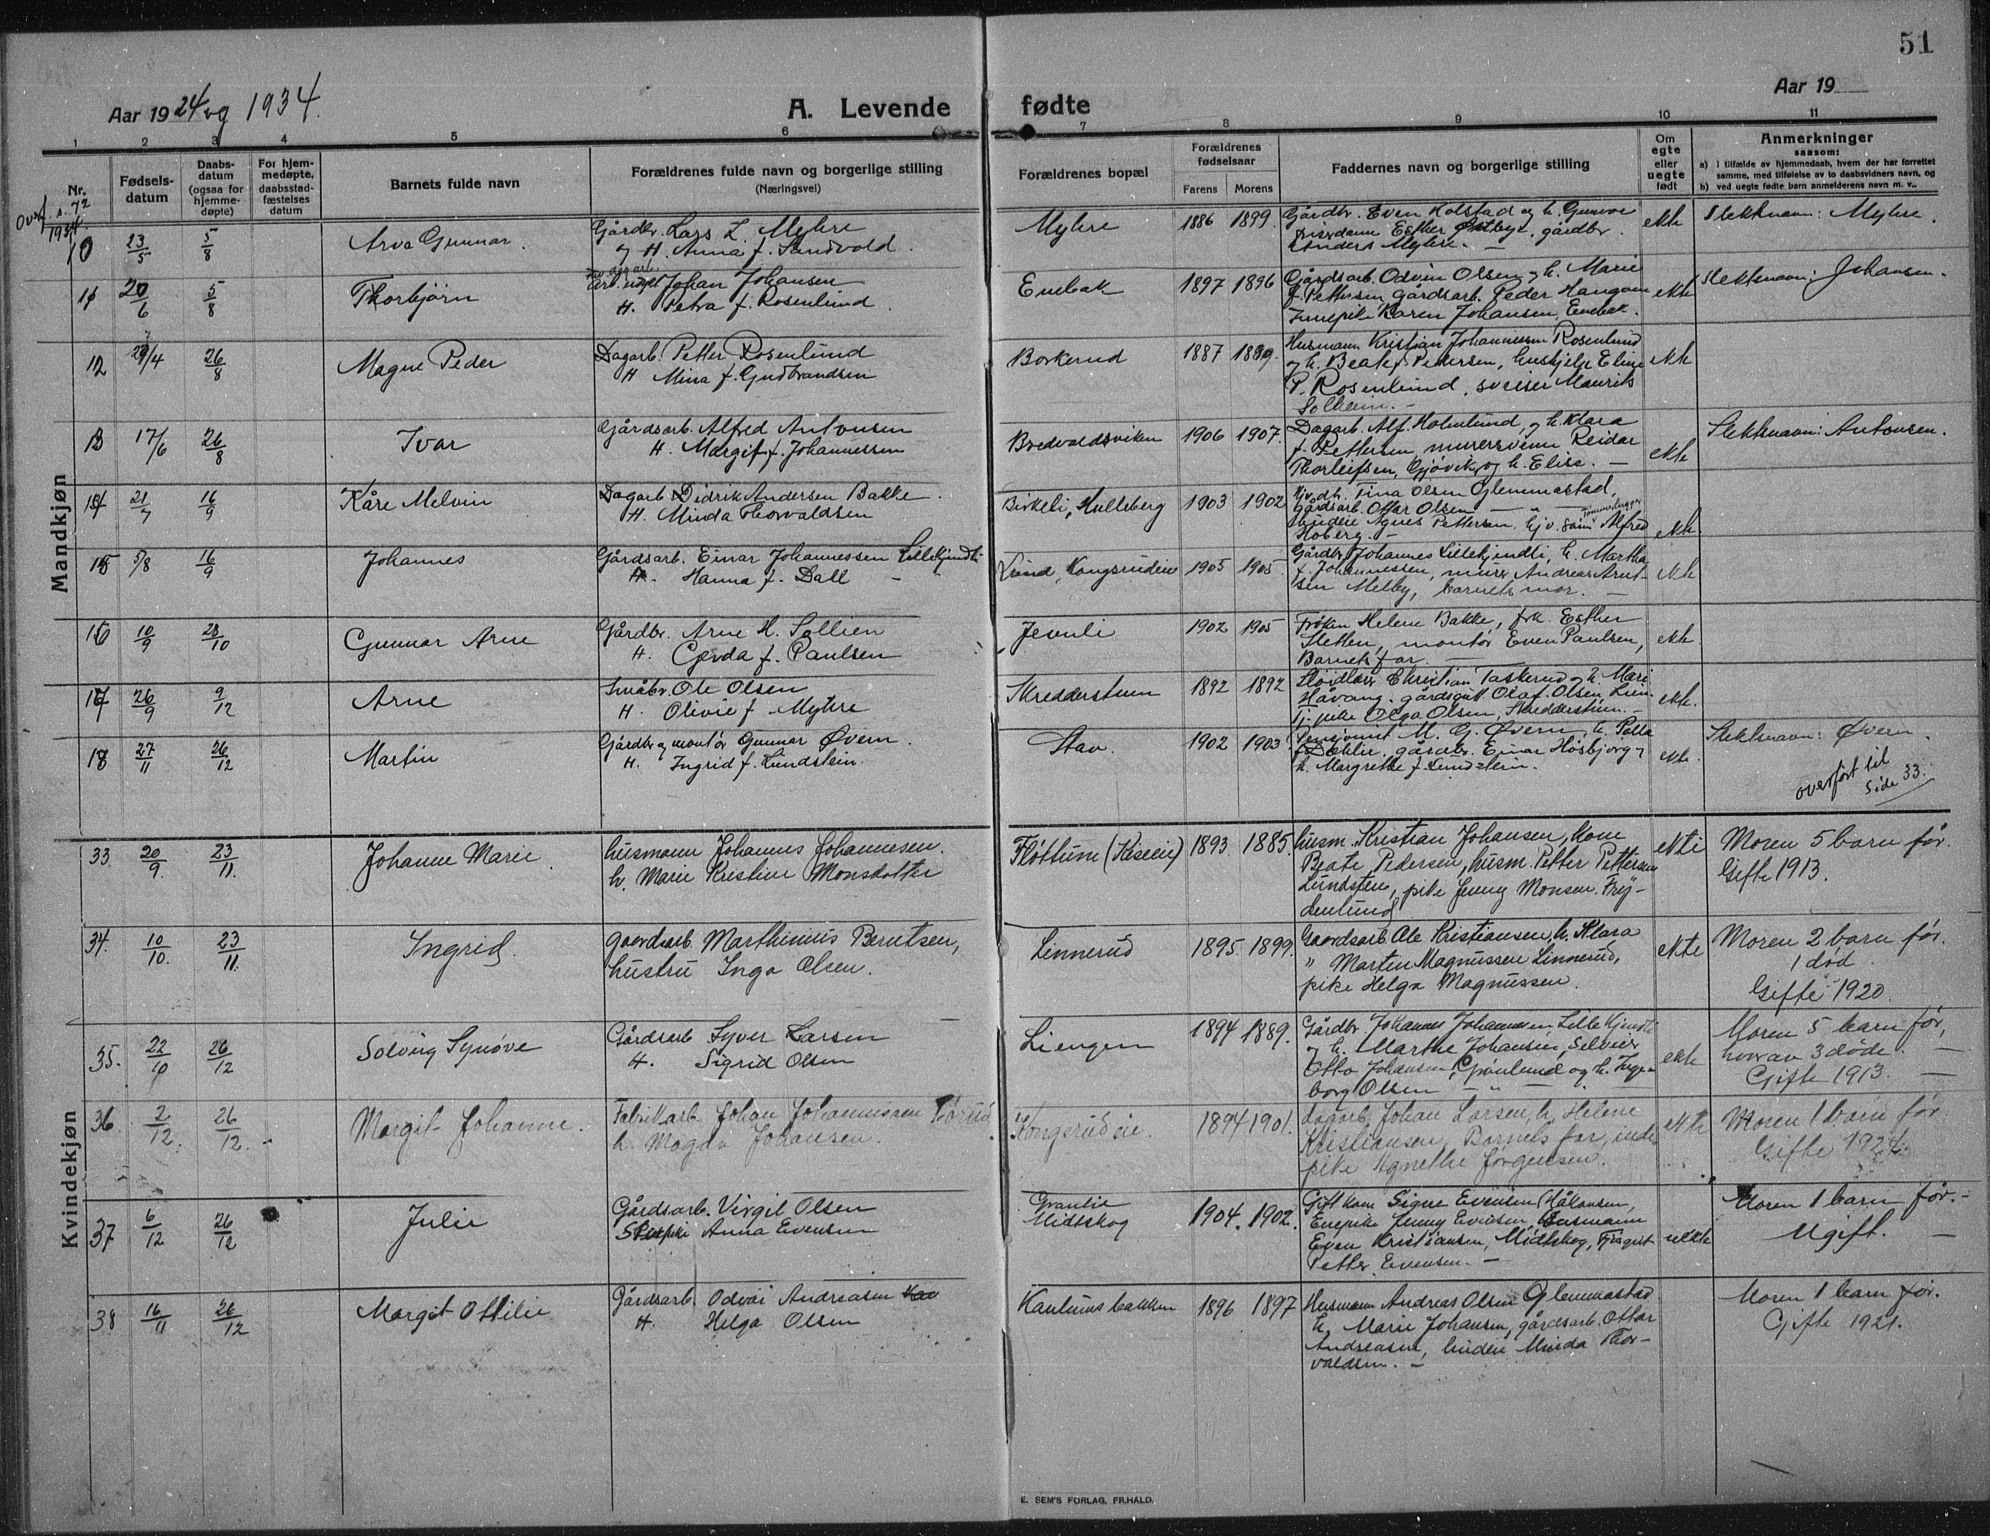 51
Aar 1924 og 1934.
A. Levende fødte
Aar 19
1 2 3 4 5 6 7 8 9 10 11
Nr.
Fødsels-
datum
Daabs-
datum
(ogsaa for
hjemme-
døpte)
For hjem-
medøpte,
daabsstad-
fæstelses
datum
Barnets fulde navn
Forældrenes fulde navn og borgerlige stilling
(Næringsvei)
Forældrenes bopæl
Forældrenes
fødselsaar
Farens Morens
Faddernes navn og borgerlige stilling
Om
egte
eller
uegte
født
Anmerkninger
saasom:
a) I tilfælde av hjemmedaab, hvem der har forrettet
samme, med tilføielse av to daabsvidners navn, og
b) ved uegte fødte barn anmelderens navn m. v..
Overf. s. 72
1934.
Mandkjøn
10 23/5 5/8 Arve Gunnar. Gårdbr. Lars L. Myhre
og H. Anna f. Sandvold.
Myhre 1886 1899 Gårdbr. Even Holstad og h. Gunvor
Esther Østbye, gårdbr.
Anders Myhre. —
ekte Slektsnavn: Myhre.
11 20/6 5/8 Thorbjørn Johan Johansen
H. Petra f. Rosenlund
Enebak 1897 1896 Gårdsarb. Odvin Olsen og h. Marie
f. Pettersen, gårdsarb. Peder Haugom
Innepike Karen Johansen, Enebak.
ekte Slektsnavn: Johansen.
12 29/4 26/8 Magne Peder Dagarb. Petter Rosenlund
H Mina f. Gudbrandsen
Borkerud 1887 1889. Husmann Kristian Johannessen Rosenlund
og h. Beate f. Pedersen, hushjelp Eline
P. Rosenlund, sveiser Maurits
Solheim. —
ekte
13 17/6 26/8 Ivar Gårdsarb. Alfred Antonsen
H. Margit f. Johannessen
Bredvoldsviken 1906 1907. Dagarb. Alf. Holmlund, og h. Klara
f. Pettersen, murersvenn Reidar
Thorleifsen, Gjøvik, og h. Elise. —
ekte Slektsnavn: Antonsen.
14 21/7 16/9 Kåre Melvin Dagarb. Didrik Andersen Bakke.
H. Minda Thorvaldsen
Birkeli, Hulleberg 1903 1902 Tina Olsen Glemmastad,
Gårdsarb. Ottar Olsen — " —
Agnes Pettersen, Alfred
Hoberg. —
ekte
15 5/8 16/9 Johannes Gårdsarb. Einar Johannessen Lillekjindli
H. Hanna f. Dall — " —
Lund, Kongsrudeie 1905 1905 Gårdbr. Johannes Lillekjindli, h. Martha
f. Johannessen, murer Andreas Arnt-
sen Melby, barnets mor. —
ekte
16 10/9 28/10 Gunnar Arne Gårdbr. Arne H. Sollien
H. Gerda f. Paulsen
Jevnli 1902 1905 Frøken Helene Bakke, frk. Esther
Sletten, montør Even Paulsen,
Barnets far.
ekte
17 26/9 9/12 Arne Småbr. Ole Olsen
H. Olivie f. Myhre
Skredderstuen 1892 1892 Christian Taskerud og h. Mari
Håvang, gårdsgutt Olaf Olsen Lien
tj. pike Olga Olsen, Skredderstuen. —
ekte.
18 27/11 26/12 Martin Gårdbr. og montør Gunnar Øvern.
H. Ingrid f. Lundstein.
Stav 1902 1903 M. G. Øvern, h. Petra
f. Dæhlie, gårdbr. Einar Høsbjorg og
h. Margrethe f. Lundstein.
ekte. Slektsnavn: Øvern.
overført til
Side 33.
Kvindekjøn
33. 20/9 23/11. Johanne Marie. husmann Johannes Johannesen.
h. Marie Kristine Monskotter
Fløttum (Kiseeie) 1893 1885. husm. Kristian Johansen, kone
Beate Pedersen, husm. Petter Pettersen
Lundsten, pike Jenny Monsen. Frÿ-
denlund
ekte Moren 5 barn før.
Gifte 1913.
34. 10/10. 23/11. Ingrid. gaardsarb. Marthinius Berntsen,
hustru Inga Olsen.
Linnerud 1895. 1899. Gaardsarb. Ole Kristiansen, h. Klara
" Marten Magnussen Linnerud,
pike Helga Magnussen.
ekte Moren 2 barn før.
1 død.
Gifte 1920.
35. 22/10 26/12 Solveig Synøve Gårdsarb Syver Larsen
H. Sigrid Olsen
Liengen 1894 1889. Gårdbr. Johannes Johannesen Lille Kjindli
og h. Marthe Johansen, Selveier
Otto Johansen, Grønlund og h. Inge-
borg Olsen — " —
ekte Moren 5 barn før,
hvorav 3 døde. —
Gifte 1913. —
36. 2/12. 26/12. Margit Johanne. Fabrikarb. Johan Johannessen Tørud,
h. Magda Johansen.
Kongerudeie. 1894 1901. dagarb. Johan Larsen, h. Helene
Kristiansen, Barnets far, inde
pike Agnethe Jørgensen.
ekte Moren 1 barn før
Gifte 1924.
37 6/12 26/12 Julie Gårdsarb. Virgil Olsen
Anna Evensen
Grantie
Midtskog 1904. 1902. Gift kone Signe Evensen (Håkonsen,
Enepike Jenny Evensen, husmann
Even Kristiansen, Midtskog, Tjgut
Petter Evensen. —
uekte Moren 1 barn før. —
Ugift. —
38 16/11 26/12 Margit Ottilie Gårdsarb. Odvai Andreasen
H. Helga Olsen
Kanlunsbakken 1896 1897 Husmann Andreas Olsen Glemmastad
h. Marie Johansen, gårdsarb. Ottar
Andreasen, Minda Thor-
valdsen. —
Moren 1 barn før.
Gifte 1921.
E. SEM'S FORLAG, FR.HALD.